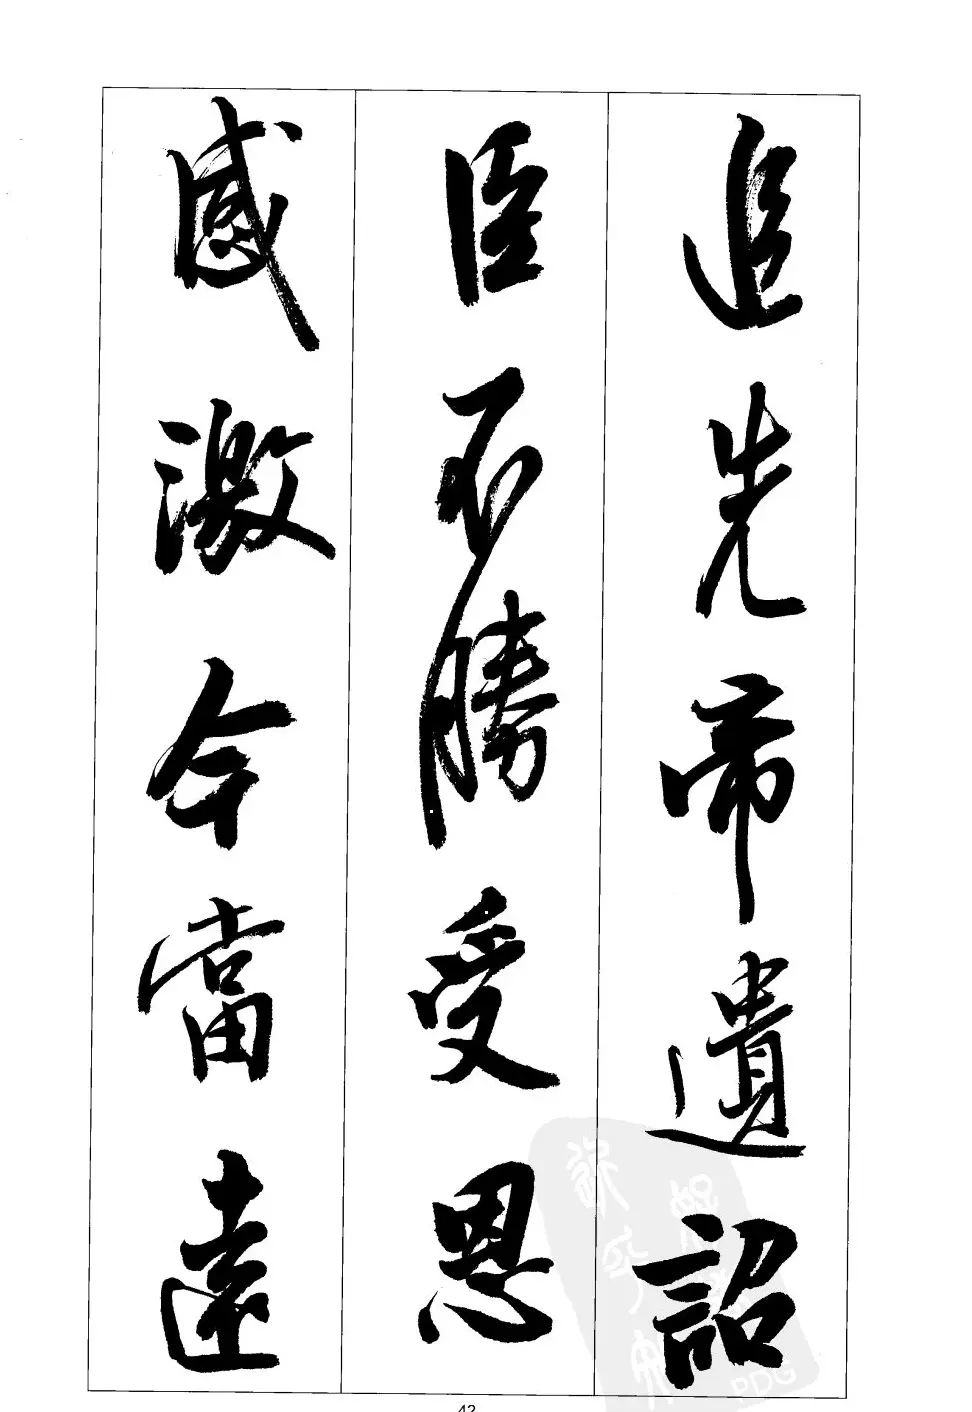 追先帝遺詔
臣不勝受恩
感激今當遠
42
PDG